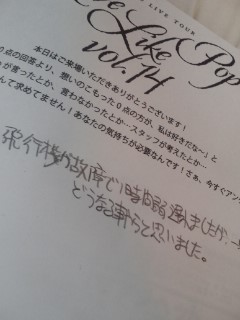 LIVE TOUR
Love Like Pop
vol.14
本日はご来場いただきありがとうございます!
0点の回答より、想いのこもった0点の方が、私は好きだな~」と
が言ったとか、言わなかったとか…スタッフが考えたとか…
んて求めてません!あなたの気持ちが必要なんです!さあ、今すぐアン
飛行機が故障で1時間弱遅れましたが、
どうなる事かと思いました。